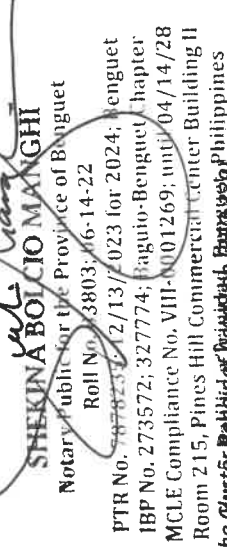 SHEKINA BOLCIO MANGHI
Notary Public for the Province of Benguet
Roll No. 3803; 06-14-22
PTR No. 12/13/2023 for 2024; Benguet
IBP No. 273572; 327774; Baguio-Benguet Chapter
MCLE Compliance No. VIII-0001269; until 04/14/28
Room 215, Pines Hill Commercial Center Building II
Philippines